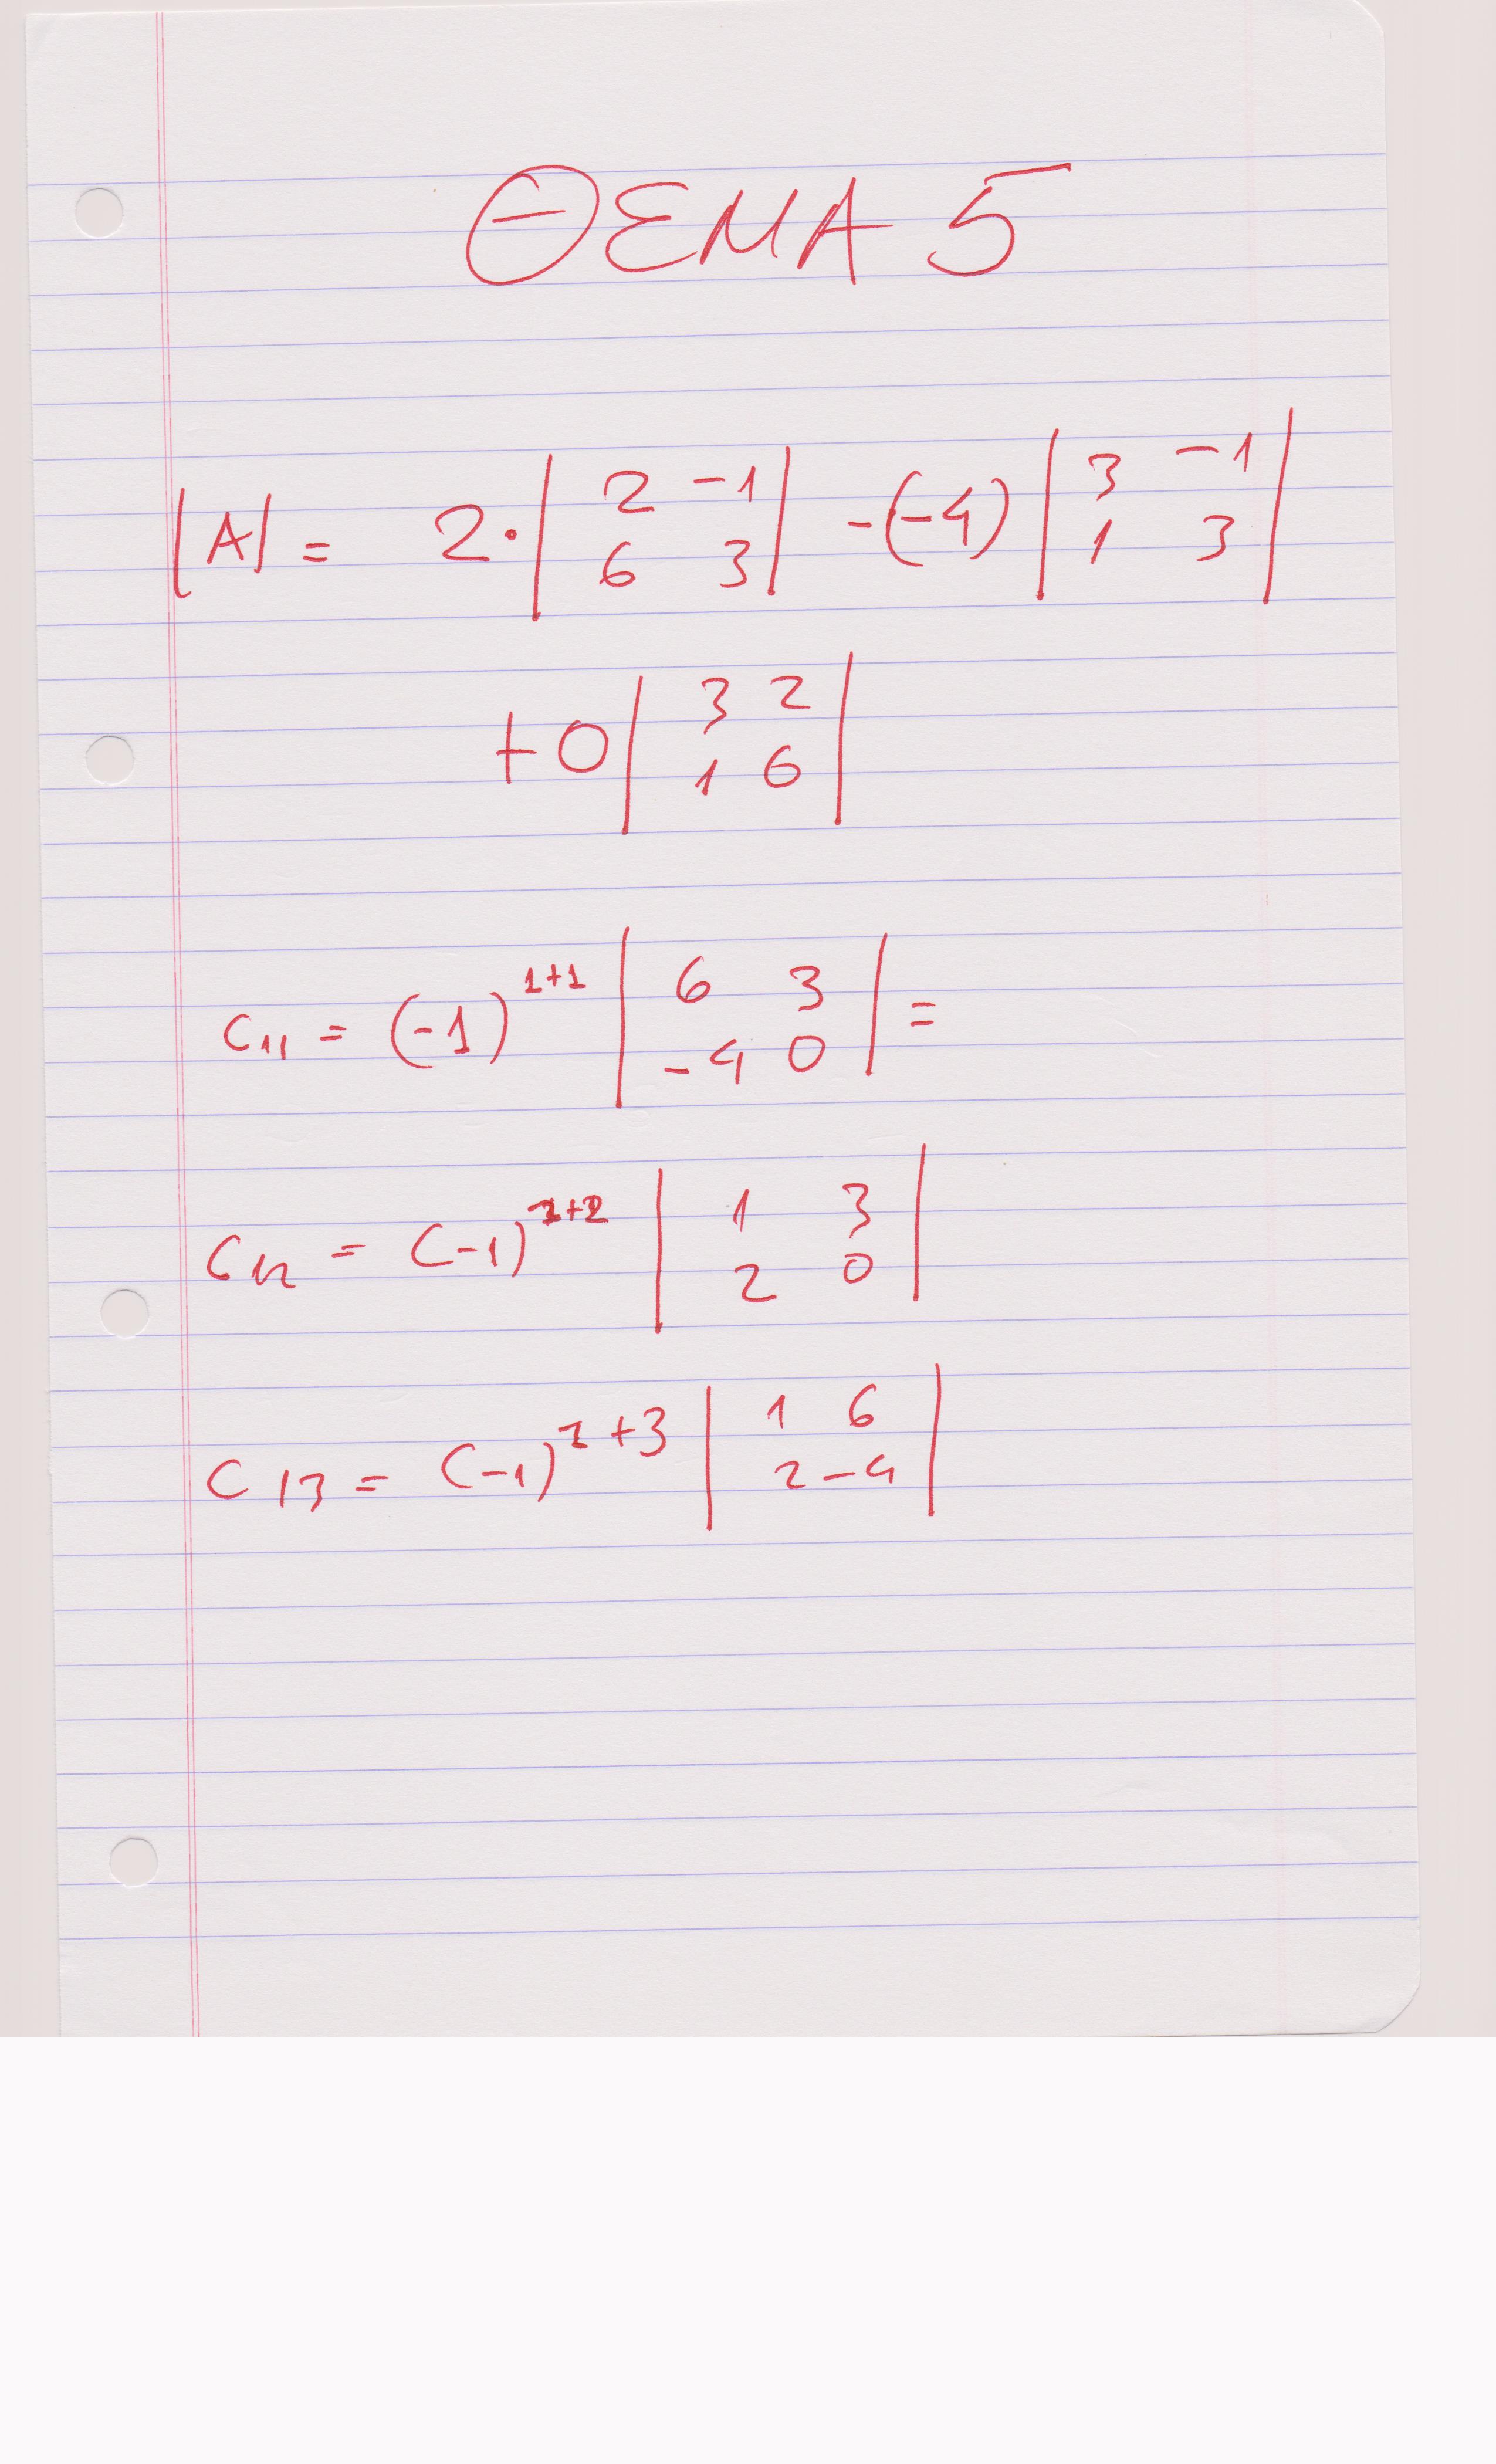 ΘΕΜΑ 5
|A| = 2· | 2 -1 | -(-4) | 3 -1 |
| 6 3 | | 1 3 |
+0 | 3 2 |
| 1 6 |
C11 = (-1)^1+1 | 6 3 | =
| -4 0 |
C12 = (-1)^1+2 | 1 3 |
| 2 0 |
C13 = (-1)^1+3 | 1 6 |
| 2 -4 |